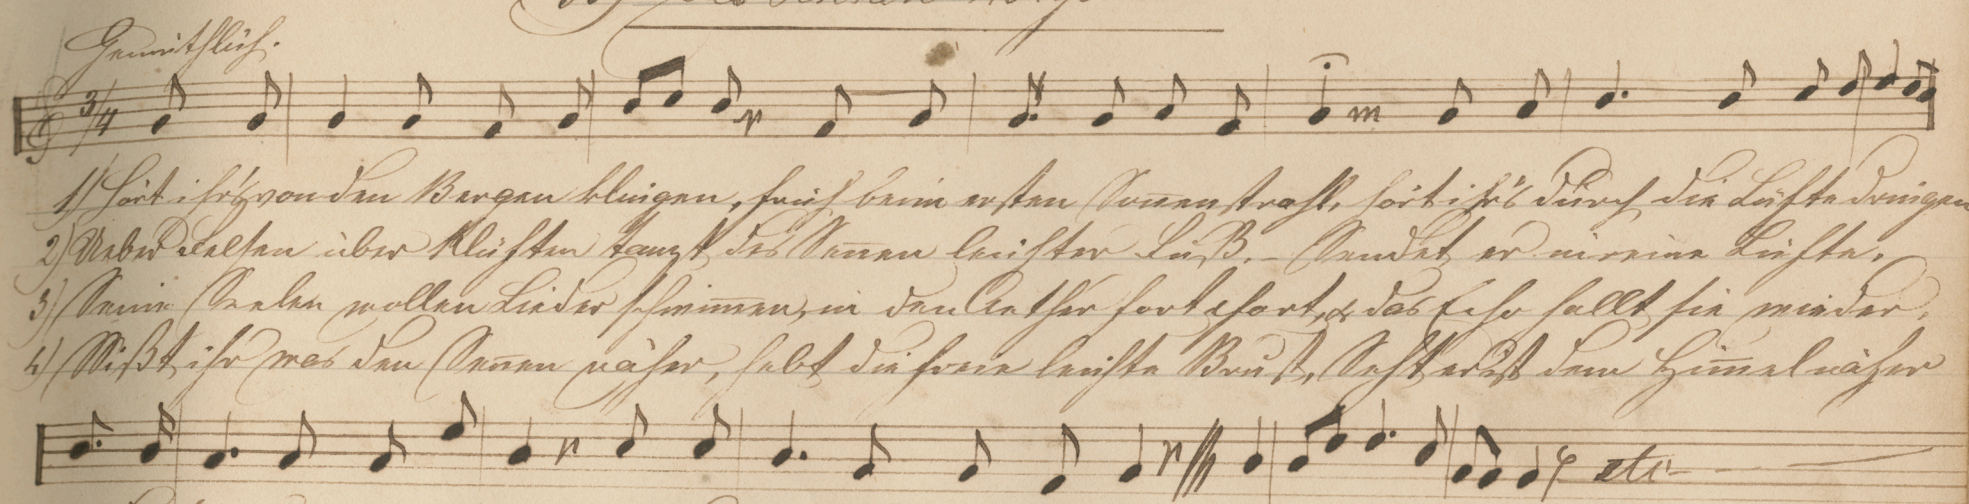 Gemüthlich.
3/4
1) Hört ihr's von den Bergen klingen, früh beim ersten Sonnenstrahl, hört ihr's durch die Lüfte dringen
2) Ueber Felsen über Klüften tanzt des Sennen leichter Fuß. – Sendet er in reine Lüfte,
3) Seine Seelen vollen Lieder schwimmen, in den Aether fort & fort, & das Echo hallt sie wieder,
4) Wißt ihr was den Sennen näher, hebt die freie leichte Brust, Seht er ist dem Himmel näher
etc